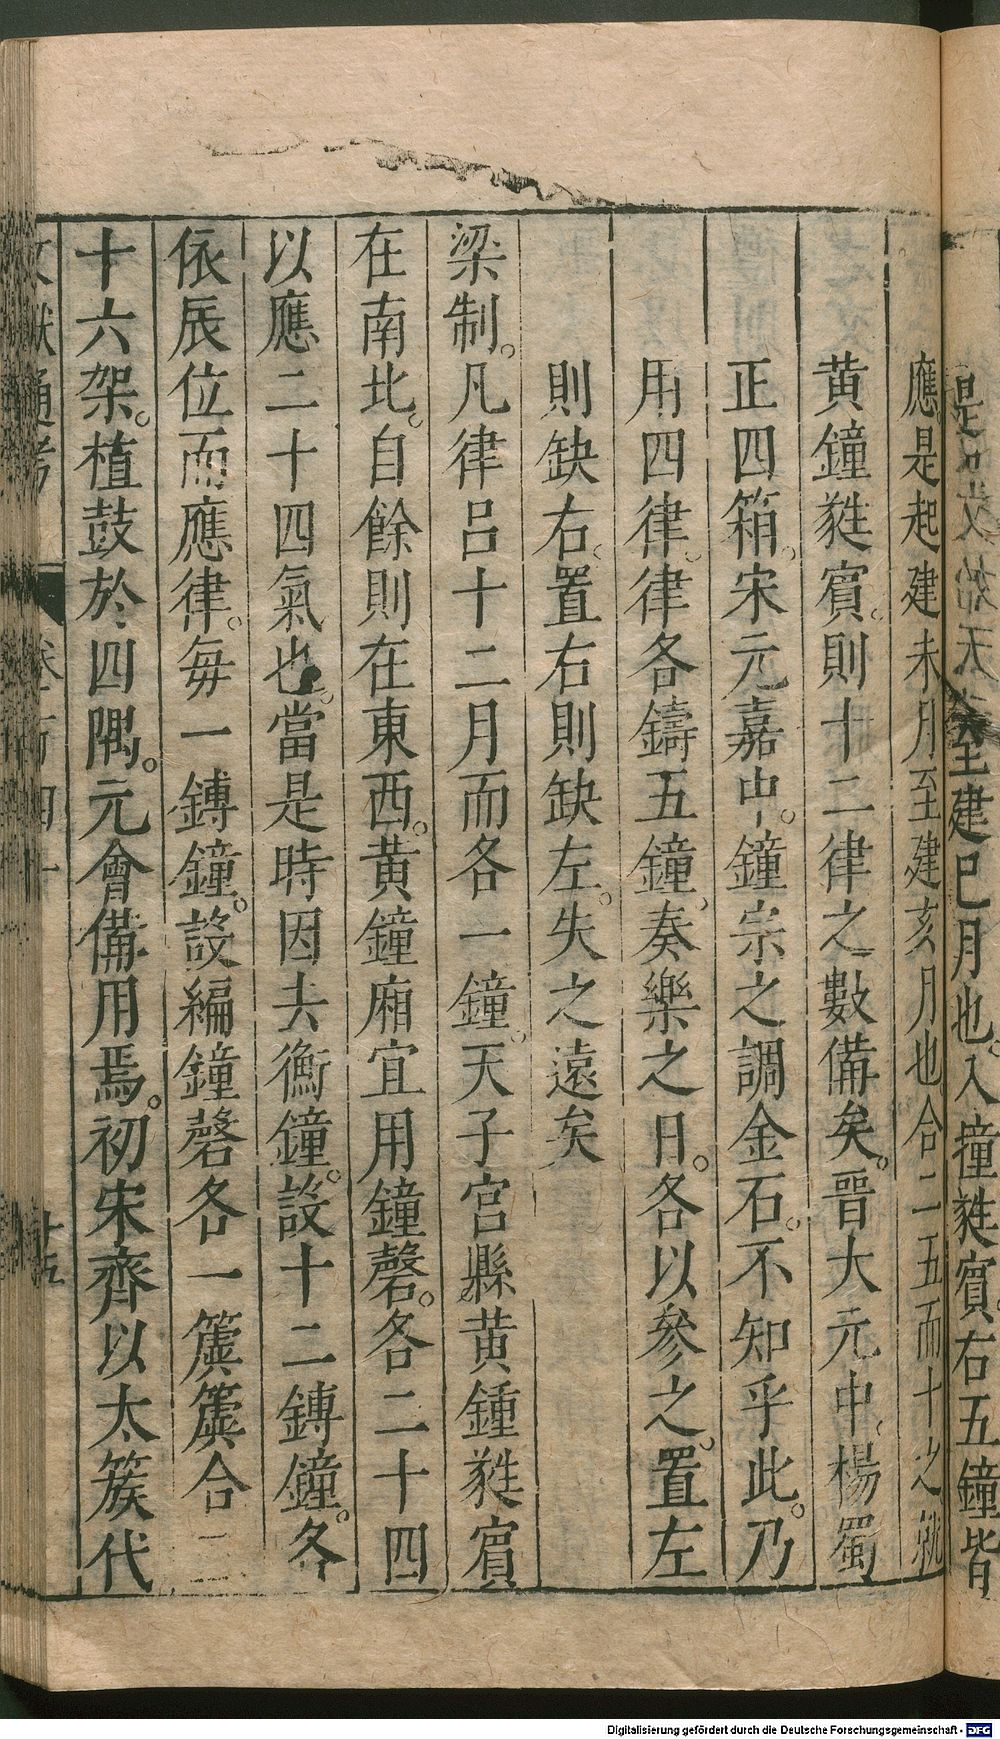 至建巳月也入撞蕤賓右五鐘皆
應是起建未月至建亥月也合二五而十之就
黃鐘蕤賓則十二律之數備矣晉大元中楊蜀
正四箱宋元嘉中鐘宗之調金石不知乎此乃
用四律律各鑄五鐘奏樂之日各以參之置左
則缺右置右則缺左失之遠矣
梁制凡律呂十二月而各一鐘天子宮縣黃鍾蕤賓
在南北自餘則在東西黃鐘廂宜用鐘磬各二十四
以應二十四氣也當是時因去衡鐘設十二鏄鐘各
依辰位而應律每一鏄鐘設編鐘磬各一簴簴合三
十六架植鼓於四隅元會備用焉初宋齊以太簇代
文獻通考 卷一百四十 廿五
Digitalisierung gefördert durch die Deutsche Forschungsgemeinschaft - DFG